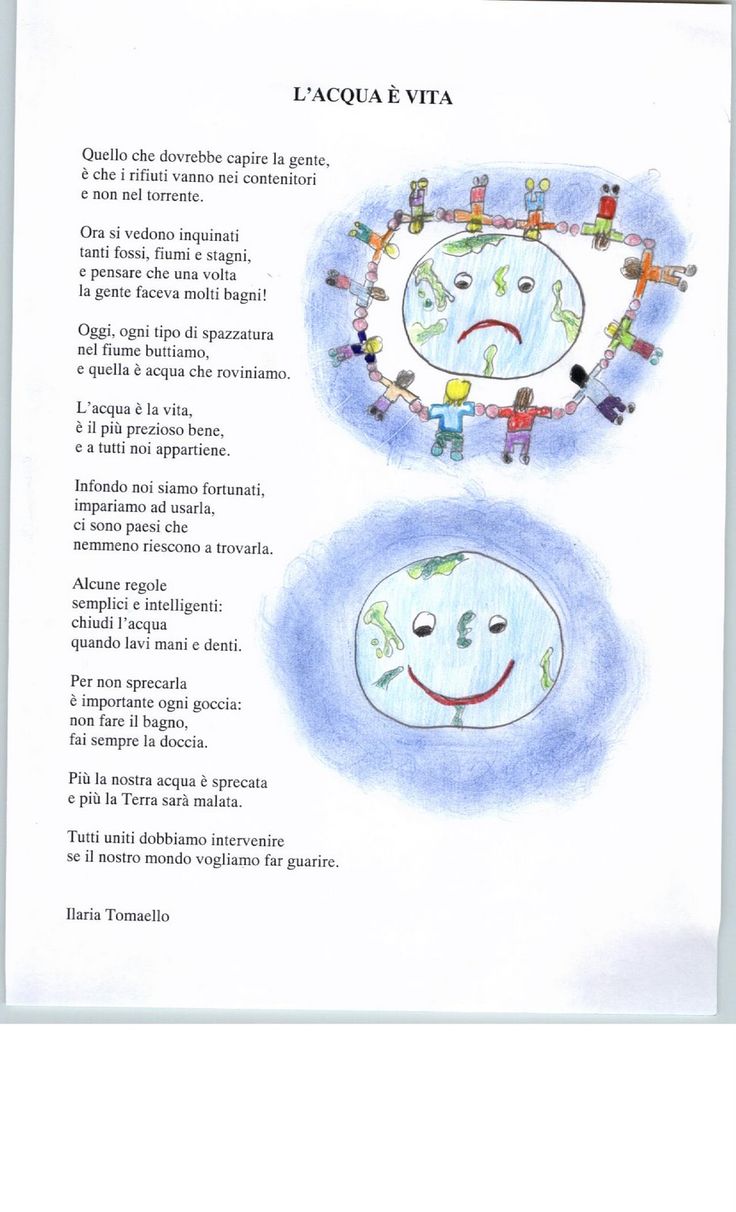 L'ACQUA È VITA
Quello che dovrebbe capire la gente,
è che i rifiuti vanno nei contenitori
e non nel torrente.
Ora si vedono inquinati
tanti fossi, fiumi e stagni,
e pensare che una volta
la gente faceva molti bagni!
Oggi, ogni tipo di spazzatura
nel fiume buttiamo,
e quella è acqua che roviniamo.
L'acqua è la vita,
è il più prezioso bene,
e a tutti noi appartiene.
Infondo noi siamo fortunati,
impariamo ad usarla,
ci sono paesi che
nemmeno riescono a trovarla.
Alcune regole
semplici e intelligenti:
chiudi l'acqua
quando lavi mani e denti.
Per non sprecarla
è importante ogni goccia:
non fare il bagno,
fai sempre la doccia.
Più la nostra acqua è sprecata
e più la Terra sarà malata.
Tutti uniti dobbiamo intervenire
se il nostro mondo vogliamo far guarire.
Ilaria Tomaello